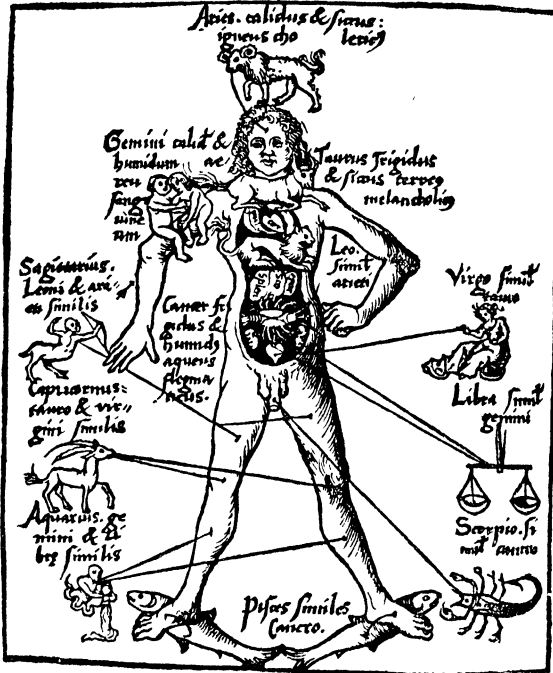 Aries. calidus & siccus:
igneus cho lericus
Gemini calid &
humidum ae
reu
sangui
Taurus frigidus
& siccus terreus
melancholicus
Leo.
simil
arieti
Sagittarius.
Leoni & ari=
eti similis
Cancer fri
gidus &
humidus
aqueus
flegma
ticus.
Virgo simil
tauro
Capricornus:
tauro & vir=
gini similis
Libra simil
gemini
Aquarius. ge
mini & li
brę similis
Scorpio. si
mil cancro
Pisces similes
Cancro.